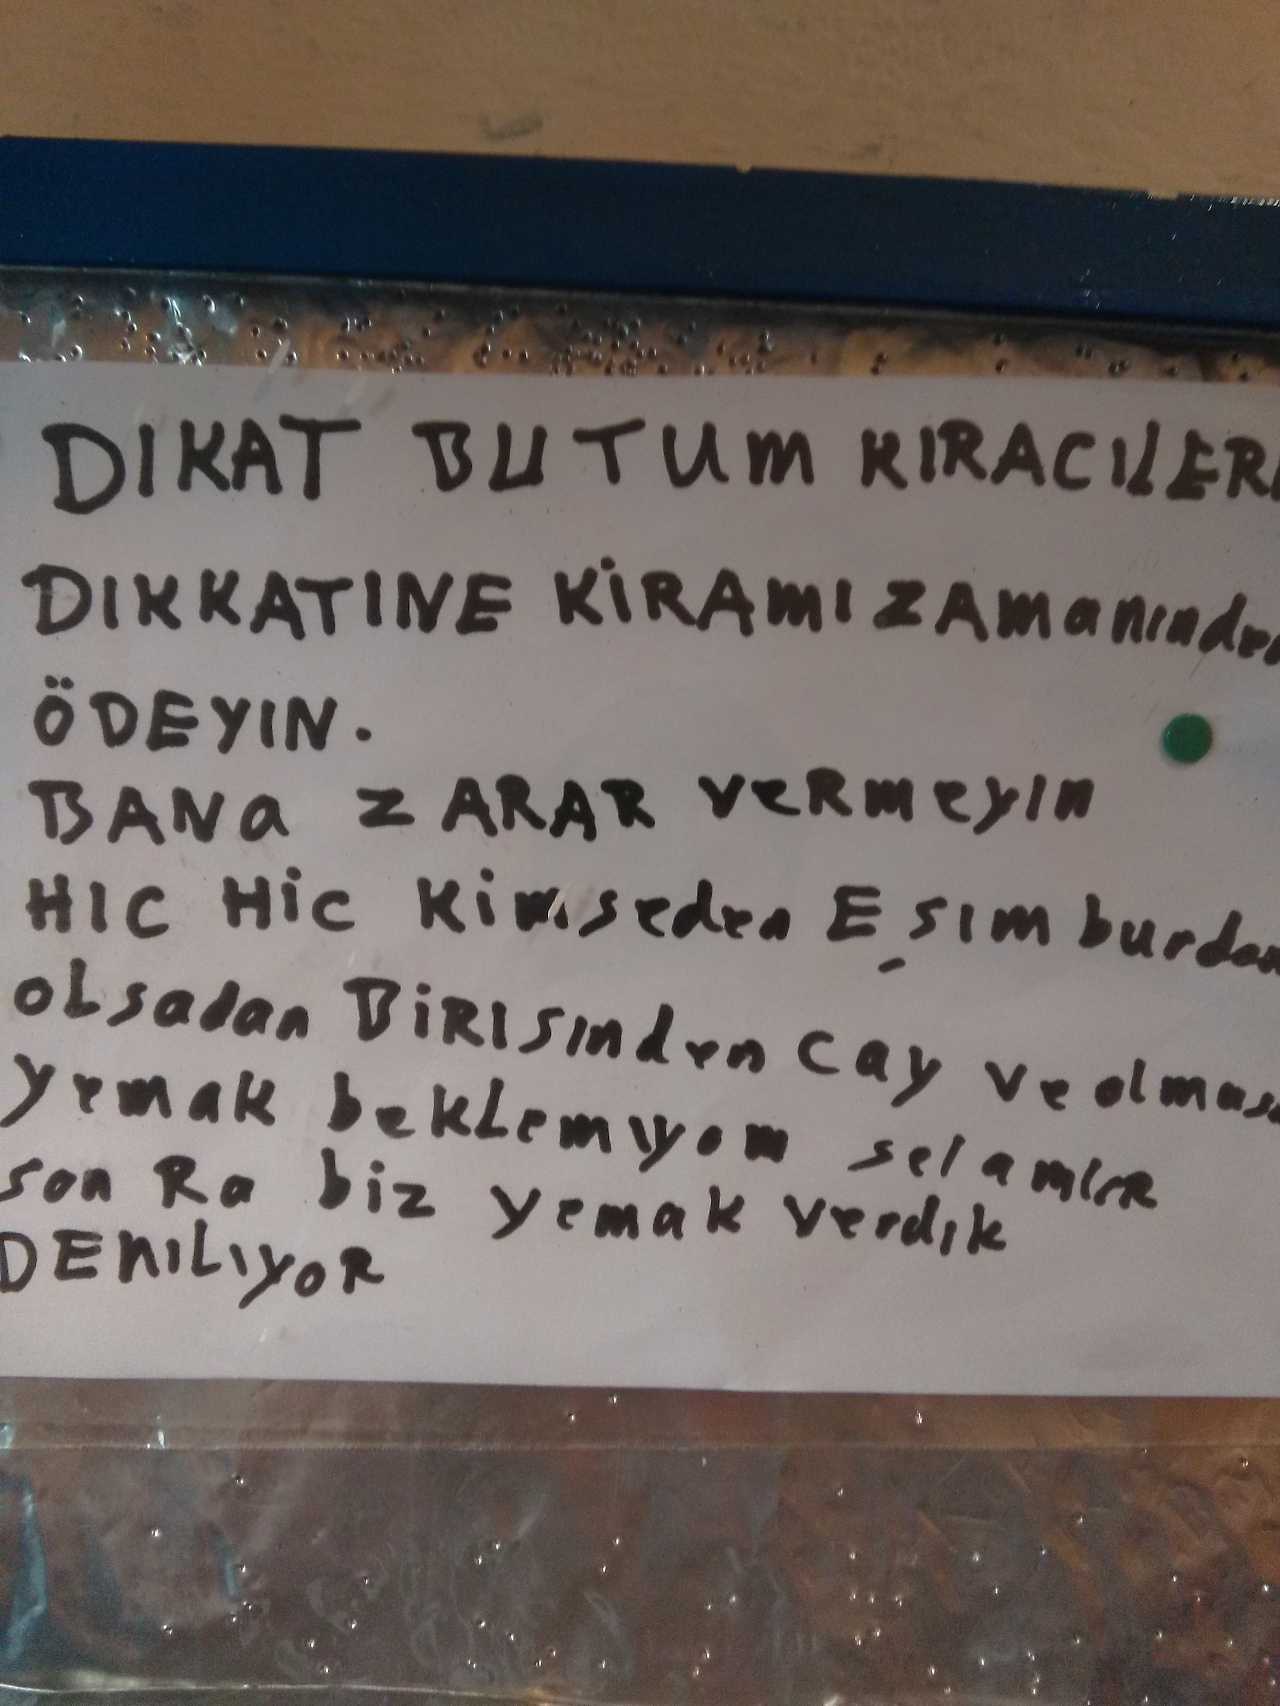 DIKAT BUTUM KIRACILER
DIKKATINE KiRAMI ZAmanında
ÖDEYIN.
BANa ZARAR veRmeyın
HIC HiC Kimseden EŞım burdan
oLsadan BiRISından cay ve olmasa
yemak bekLemıyom
sonRa biz yemak verdık
DEnıLıyoR